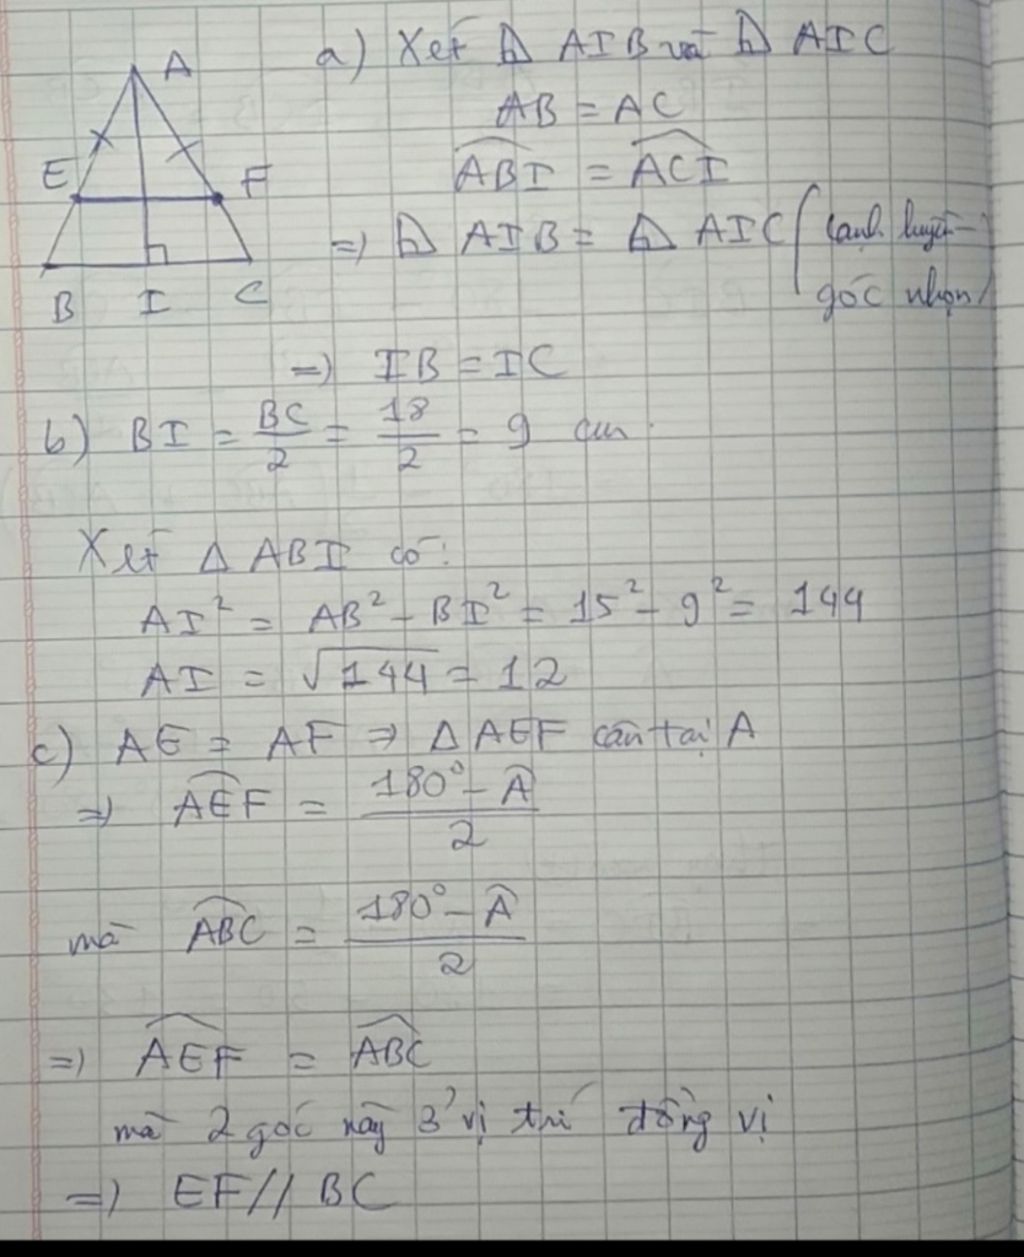 A
E
F
B I C
a) Xét ⊿ AIB và ⊿ AIC
AB = AC
\widehat{ABI} = \widehat{ACI}
=> ⊿ AIB = ⊿ AIC (cạnh huyền-
góc nhọn)
=> IB = IC
b) BI = \frac{BC}{2} = \frac{18}{2} = 9 cm
Xét Δ ABI có:
AI² = AB² - BI² = 15² - 9² = 144
AI = √144 = 12
c) AE = AF => Δ AEF cân tại A
=> \widehat{AEF} = \frac{180° - \widehat{A}}{2}
mà \widehat{ABC} = \frac{180° - \widehat{A}}{2}
=> \widehat{AEF} = \widehat{ABC}
mà 2 góc này ở vị trí đồng vị
=> EF // BC